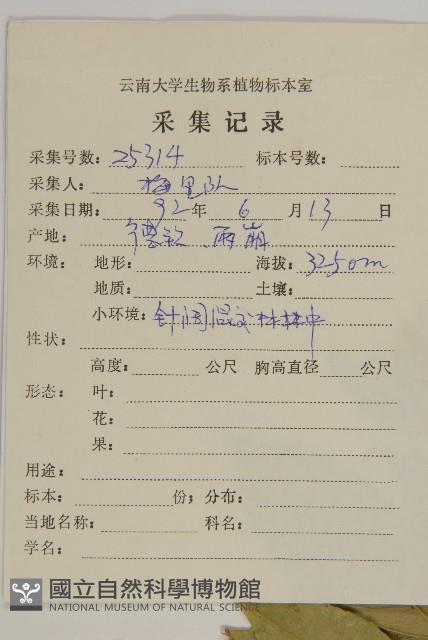 云南大学生物系植物标本室
采集记录
采集号数: 25314 标本号数:
采集人: 梅里队
采集日期: 92年 6 月 13 日
产地: 德钦、雨崩
环境: 地形: 海拔: 3250m
地质: 土壤:
小环境: 针阔混交林林中
性状:
高度: 公尺 胸高直径 公尺
形态: 叶:
花:
果:
用途:
标本: 份; 分布:
当地名称: 科名:
学名:
國立自然科學博物館
NATIONAL MUSEUM OF NATURAL SCIENCE